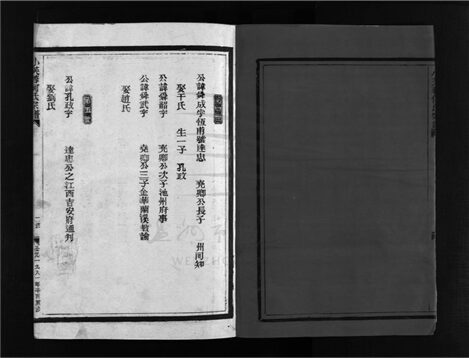 公諱舜成字恆甫號達忠 堯卿公長子 州同知
娶干氏 生一子 孔政
公諱舜韶字 堯卿公次子池州府事
公諱舜武字 堯卿公三子金華蘭溪教諭
娶趙氏
公諱孔政字 達忠公之江西吉安府通判
娶劉氏
公元一九九一年